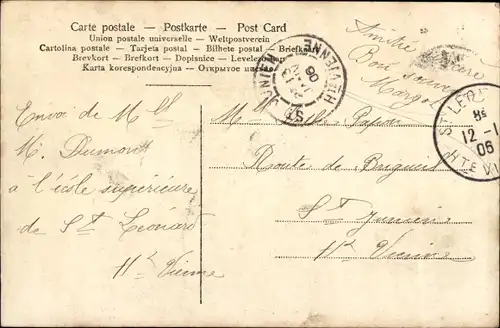 Carte postale — Postkarte — Post Card
Union postale universelle — Weltpostverein
Cartolina postale — Tarjeta postal — Bilhete postal — Briefkaart
Brevkort — Brefkort — Dopisnice — Levelező-lap
Karta korespondencyjna — Открытое
Amitié sincère
Bon souvenir
Margot
ST JUNIEN
HTE VIENNE
06
ST LÉO
12 -1
06
HTE VI
Envoi de Mll
M. Dumont
à l'école supérieure
de St Léonard
Hte Vienne
Papon
Route de
St Junien
Hte Vienne